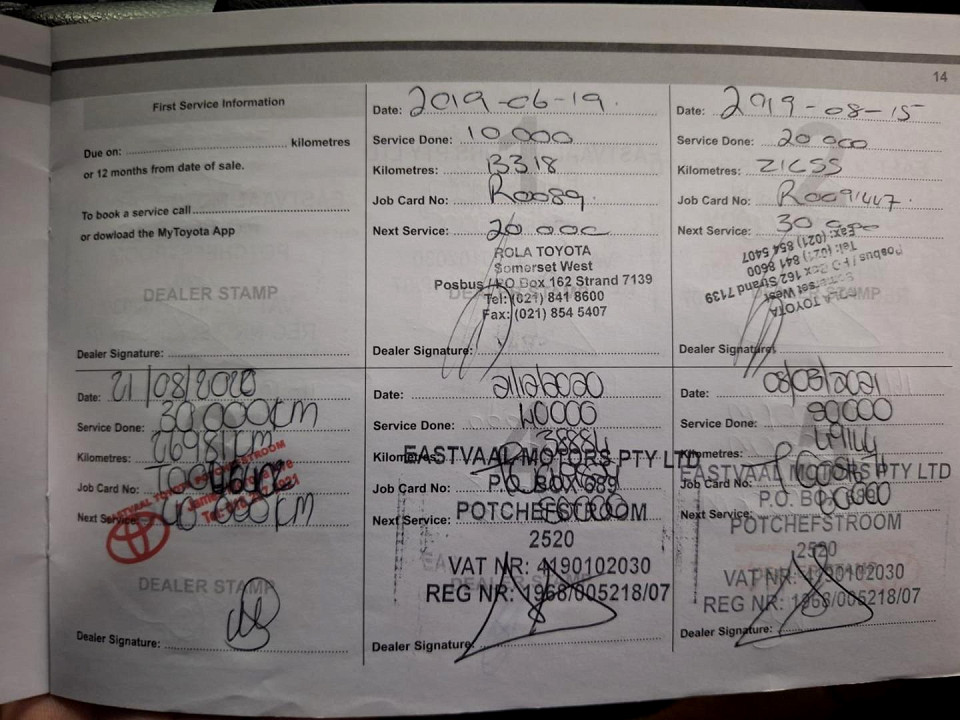 14
First Service Information
Due on: kilometres
or 12 months from date of sale.
To book a service call
or dowload the MyToyota App
DEALER STAMP
Dealer Signature:
Date: 2019-06-19.
Service Done: 10.000
Kilometres: 13318
Job Card No: R0089.
Next Service: 20.000
ROLA TOYOTA
Somerset West
Posbus / P.O Box 162 Strand 7139
Tel: (021) 841 8600
Fax: (021) 854 5407
Dealer Signature:
Date: 2019-08-15
Service Done: 20 000
Kilometres:
Job Card No: R0091447.
Next Service: 30 000
ROLA TOYOTA
Somerset West
Posbus / P.O Box 162 Strand 7139
Tel: (021) 841 8600
Fax: (021) 854 5407
Dealer Signature:
Date: 21/08/2020
Service Done: 30.000KM
Kilometres: 26981KM
Job Card No:
Next Service: 40 000KM
DEALER STAMP
Dealer Signature:
Date:
Service Done: 40000
Kilometres: 38884
EASTVAAL MOTORS PTY LTD
Job Card No:
P.O. BOX 689
Next Service:
POTCHEFSTROOM
2520
VAT NR: 4190102030
REG NR: 1968/005218/07
Dealer Signature:
Date: 08/03/2021
Service Done:
Kilometres:
EASTVAAL MOTORS PTY LTD
Job Card No:
P.O. BOX
Next Service:
POTCHEFSTROOM
2520
VAT NR: 4190102030
REG NR: 1968/005218/07
Dealer Signature: